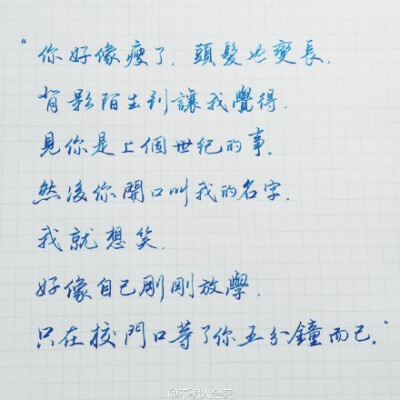 “你好像瘦了.頭髮也變長.
背影陌生到讓我覺得.
見你是上個世紀的事.
然後你開口叫我的名字.
我就想笑.
好像自己剛剛放學.
只在校門口等了你五分鐘而已.”